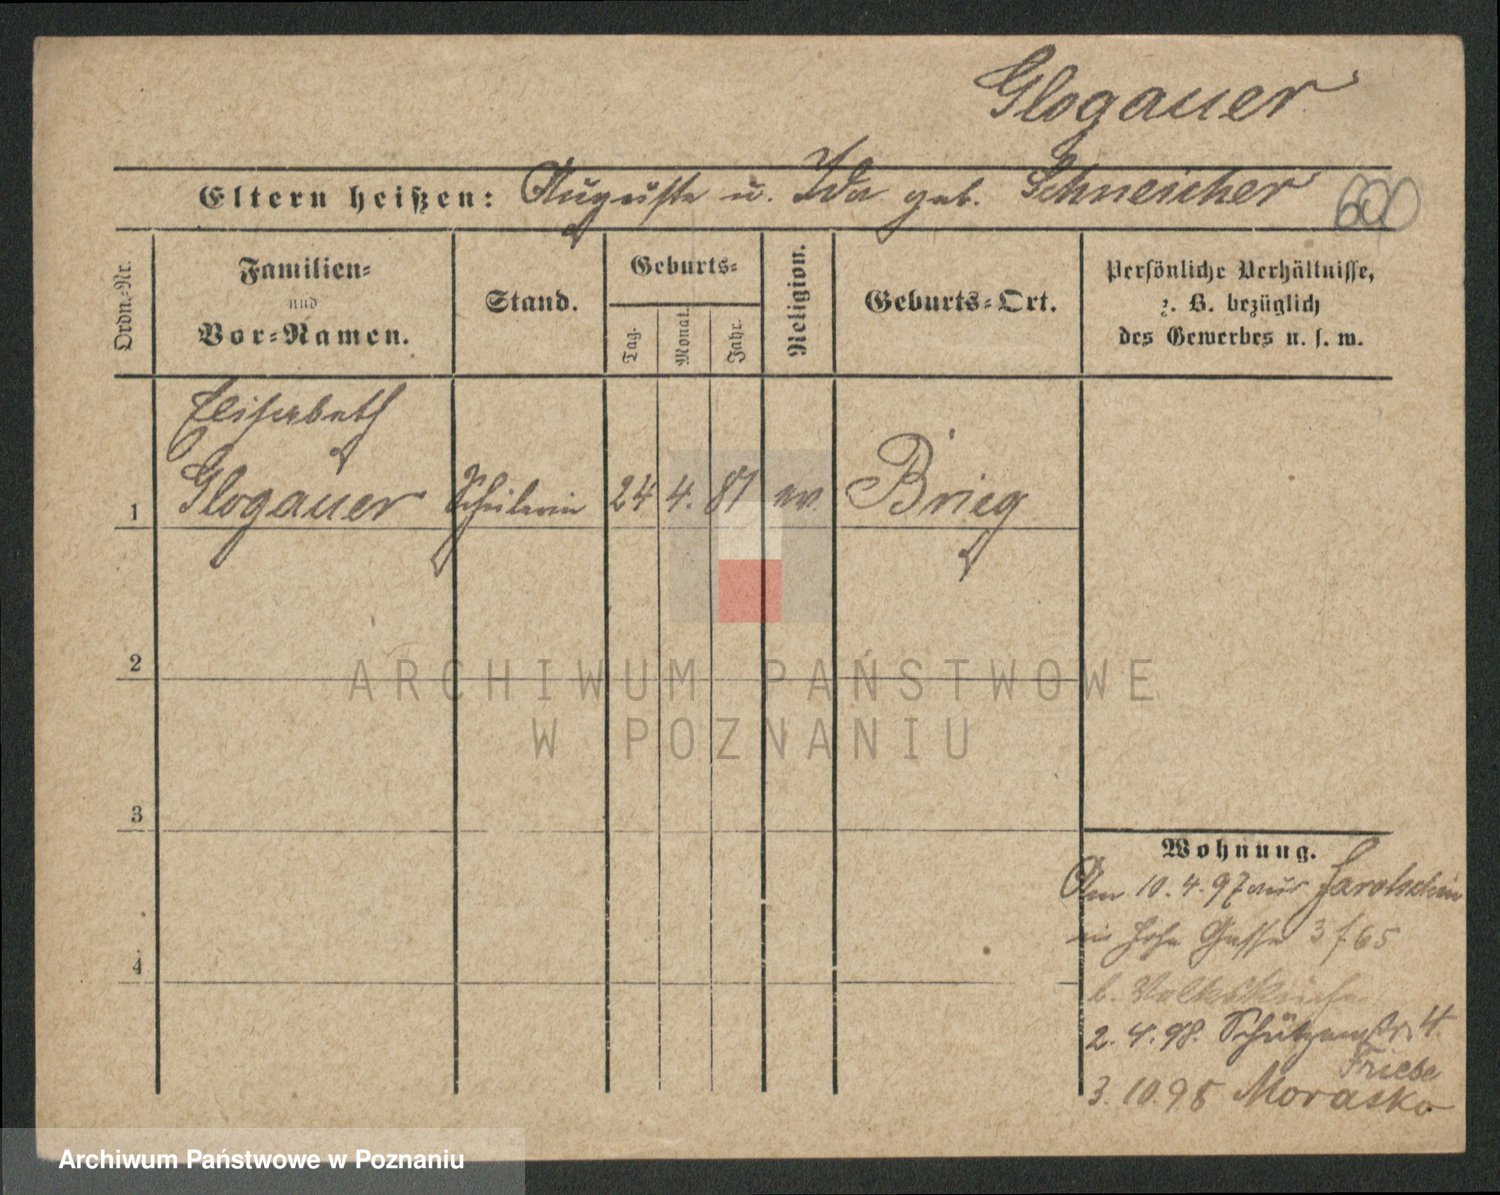 Glogauer
Eltern heißen: Auguste u. Ida geb. Schneicher
600
Ordn.-Nr.
Familien-
und
Vor-Namen.
Stand.
Geburts-
Tag.
Monat.
Jahr.
Religion.
Geburts-Ort.
Persönliche Verhältnisse,
z. B. bezüglich
des Gewerbes u. s. w.
Elisabeth
1 Glogauer Schülerin 24 4. 81 ev. Brieg
2
3
4
Wohnung.
Am 10.4.97 aus Jarotschin
in Hohe Gasse 3 f 65
b.
2.4.98. Schützenstr. 4.
Friebe
3.10.98 Morasko
ARCHIWUM PAŃSTWOWE
W POZNANIU
Archiwum Państwowe w Poznaniu